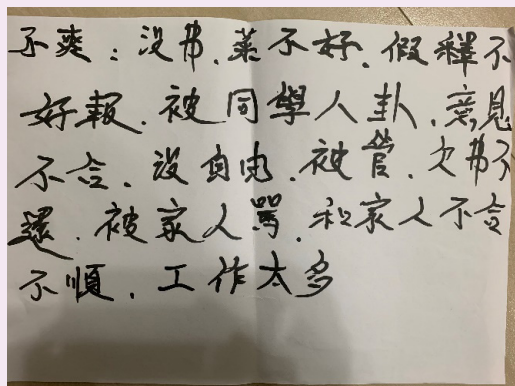 不爽：沒弗、菜不好、假釋不
好報、被同學人卦、意見
不合、沒自由、被管、欠弗不
還、被家人罵、和家人不合
不順、工作太多